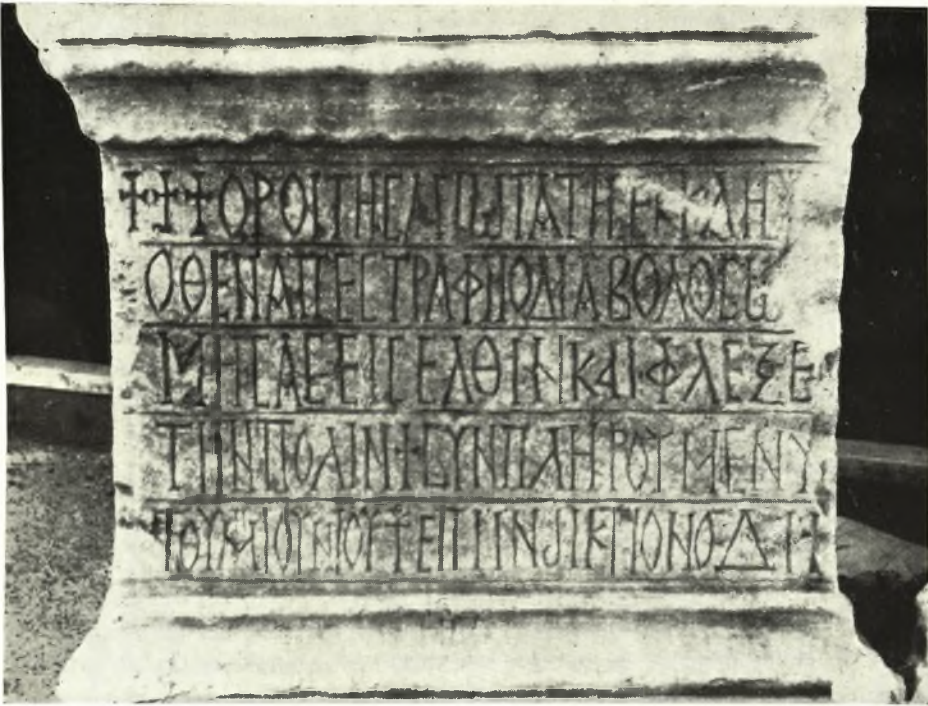 ☩☩☩ΟΡΟΙΤΗCΑΓΙΩΤΑΤΗCΕΚΚΛΗ
ΟΘΕΝΑΠΕCΤΡΑΦΗΟΔΙΑΒΟΛΟCΕΩ
ΜΗCΑCΕΙCΕΛΘΙΝΚΑΙΦΛΕΞΕ
ΤΗΝΠΟΛΙΝ·CΥΝΠΛΗΡΟΥΜΕΝΥ
ΤΟΥΜΙΟΥΝΙΟΥ†ΕΠΙΙΝΔΙΚΤΙΟΝΟCΔΗ